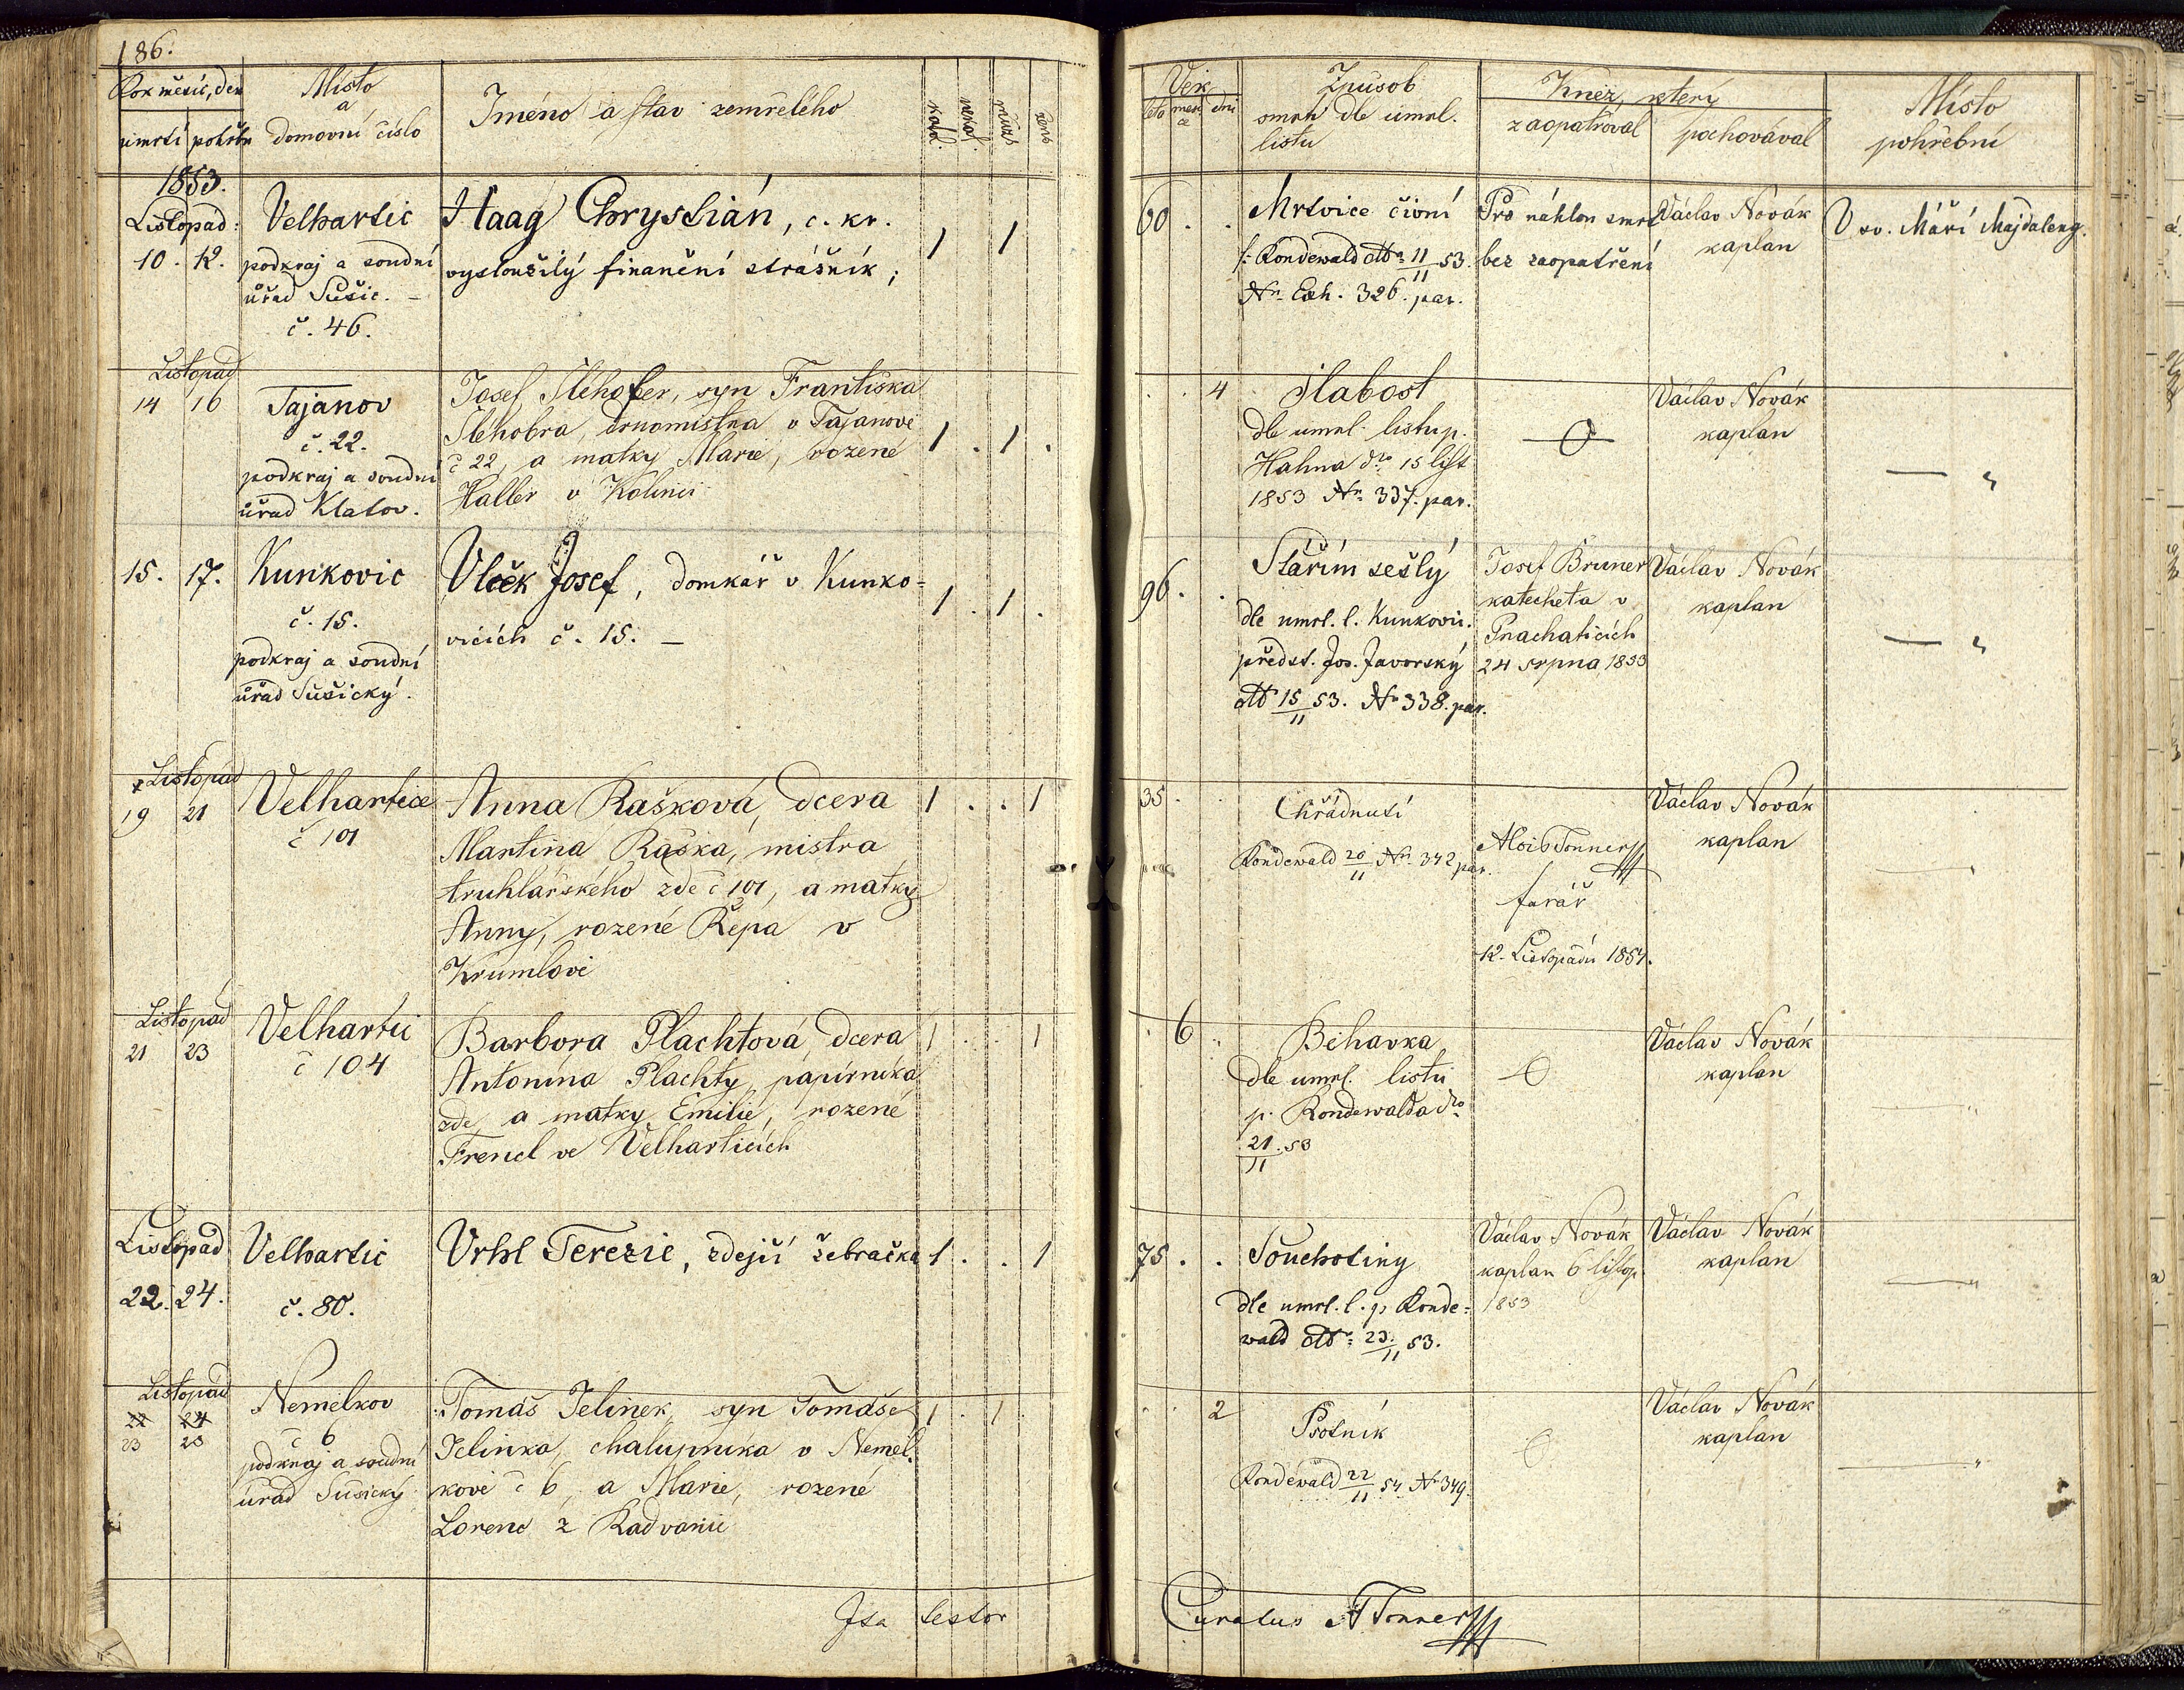 186.
Rok měsíc, den
úmrtí pohřbu
Místo
a
domovní číslo
Jméno a stav zemřelého
katol.
nekatol.
mužs
žens
1853.
Listopad.
10. 12.
Velhartic
podkraj a soudní
úřad Sušic. –
č. 46.
Haag Chrystián, c. kr.
vysloužilý finanční strážník;
1 1
Listopad
14 16
Tajanov
č. 22.
podkraj a soudní
úřad Klatov.
Josef Šlehofer, syn Františka
Šlehofra, domistra v Tajanově
č 22, a matky Marie, rozené
Haller v Kolinci
1 . 1 .
15. 17.
Kunkovic
č. 15.
podkraj a soudní
úřad Sušický.
Vlček Josef, domkář v Kunko=
vicích č. 15. –
1 . 1 .
Listopad
19 21
Velhartice
č 101
Anna Rašková, dcera
Martina Raška, mistra
truhlářského zde č 101, a matky
Anny, rozené Řepa v
Krumlově
1 . . 1
Listopad
21 23
Velhartic
č 104
Barbora Plachtová, dcera
Antonína Plachty, papírníka
zde, a matky Emilie, rozené
Frencl ve Velharticích
1 . . 1
Listopad
22. 24.
Velhartic
č. 80.
Vrhl Terezie, zdejší žebračka
1 . . 1
Listopad
22 24
23 25
Nemilkov
č 6
podkraj a soudní
úřad Sušický
Tomáš Jelinek, syn Tomáše
Jelinka, chalupníka v Nemil.
kově č 6, a Marie, rozené
Lorenc z Radvanic
1 . 1
Ita testor
Věk
léta měsíce dní
Způsob
smrti dle úmrl.
listu
Kněz, který
zaopatřoval pochovával
Místo
pohřební
60 . .
Mrtvice čivní
Rondewald dtto 11/11 53.
Nr. Exh. 326. par.
Pro náhlou smrt
bez zaopatření
Václav Novák
kaplan
U sv. Máří Majdaleny.
. . 4
Slabost
dle umrl. listu p.
Hahna dto 15 list
1853 Nr. 337. par.
Václav Novák
kaplan
— „
96. .
Stářím sešlý
dle umrl. l. Kunkovic.
předst. Jos. Javorský
dtt 15/11 53. Nr 338. par.
Josef Bruner
katecheta v
Prachaticích
24 srpna 1853
Václav Novák
kaplan
— „
35.
Chřadnutí
Rondewald 20/11 Nr. 342 par.
Alois Tonner
farář
12. Listopadu 1854.
Václav Novák
kaplan
— „
. 6 „
Běhavka
dle umrl. listu
p. Rondewalda dto
21/11 53
Václav Novák
kaplan
— „
75. .
Souchotiny
dle umrl. l. p. Ronde=
wald dtt: 23./11 53.
Václav Novák
kaplan 6 listop.
1853
Václav Novák
kaplan
— „
. . 2
Psotník
Rondewald 22/11 54 Nr 349.
Václav Novák
kaplan
— „
Curatus A Tonner